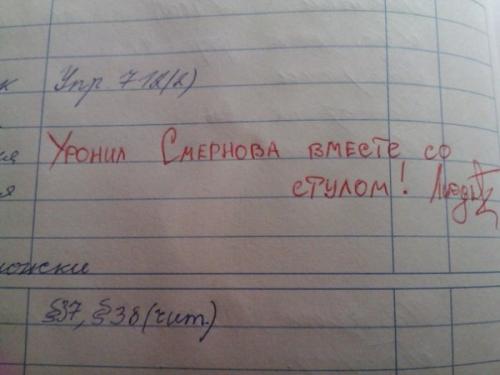 к Упр 712(2)
Уронил Смернова вместе со
стулом!
§37, §38 (чит.)